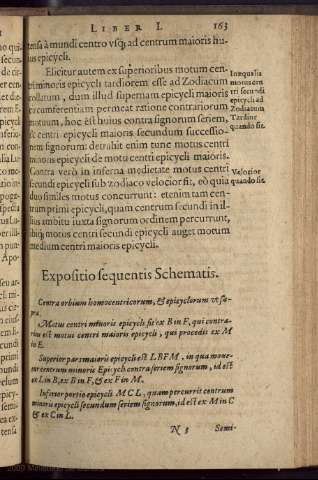 LIBER I. 163
tensa à mundi centro vsq; ad centrum maioris hu
ius epicycli.
Elicitur autem ex superioribus motum cen-
tri minoris epicycli tardiorem esse ad Zodiacum
collatum, dum illud supernam epicycli maioris
circumferentiam permeat ratione contrariorum
motuum, hoc est huius contra signorum seriem,
& centri epicycli maioris secundum successio-
nem signorum: detrahit enim tunc motus centri
minoris epicycli de motu centri epicycli maioris.
Contra verò in inferna medietate motus centri
secundi epicycli sub zodiaco velocior fit, eò quia
duo similes motus concurrunt: etenim tam cen-
trum primi epicycli, quam centrum secundi in il-
lius ambitu iuxta signorum ordinem percurrunt,
ibiq; motus centri secundi epicycli auget motum
medium centri maioris epicycli.
Inæqualis
motus cen
tri secundi
epicycli ad
Zodiacum
Tardior
quando sit.
Velocior
quando sit.
Expositio sequentis Schematis.
Centra orbium homocentricorum, & epicyclorum vt su-
pra.
Motus centri minoris epicycli fit ex B in F, qui contra-
rius est motui centri maioris epicycli, qui procedit ex M
in E.
Superior pars maioris epicycli est L B F M, in qua moue-
tur centrum minoris Epicycli contra seriem signorum, id est
ex L in B, ex B in F, & ex F in M.
Inferior portio epicycli M C L, quam percurrit centrum
minoris epicycli secundum seriem signorum, id est ex M in C
& ex C in L.
N 3 Semi-